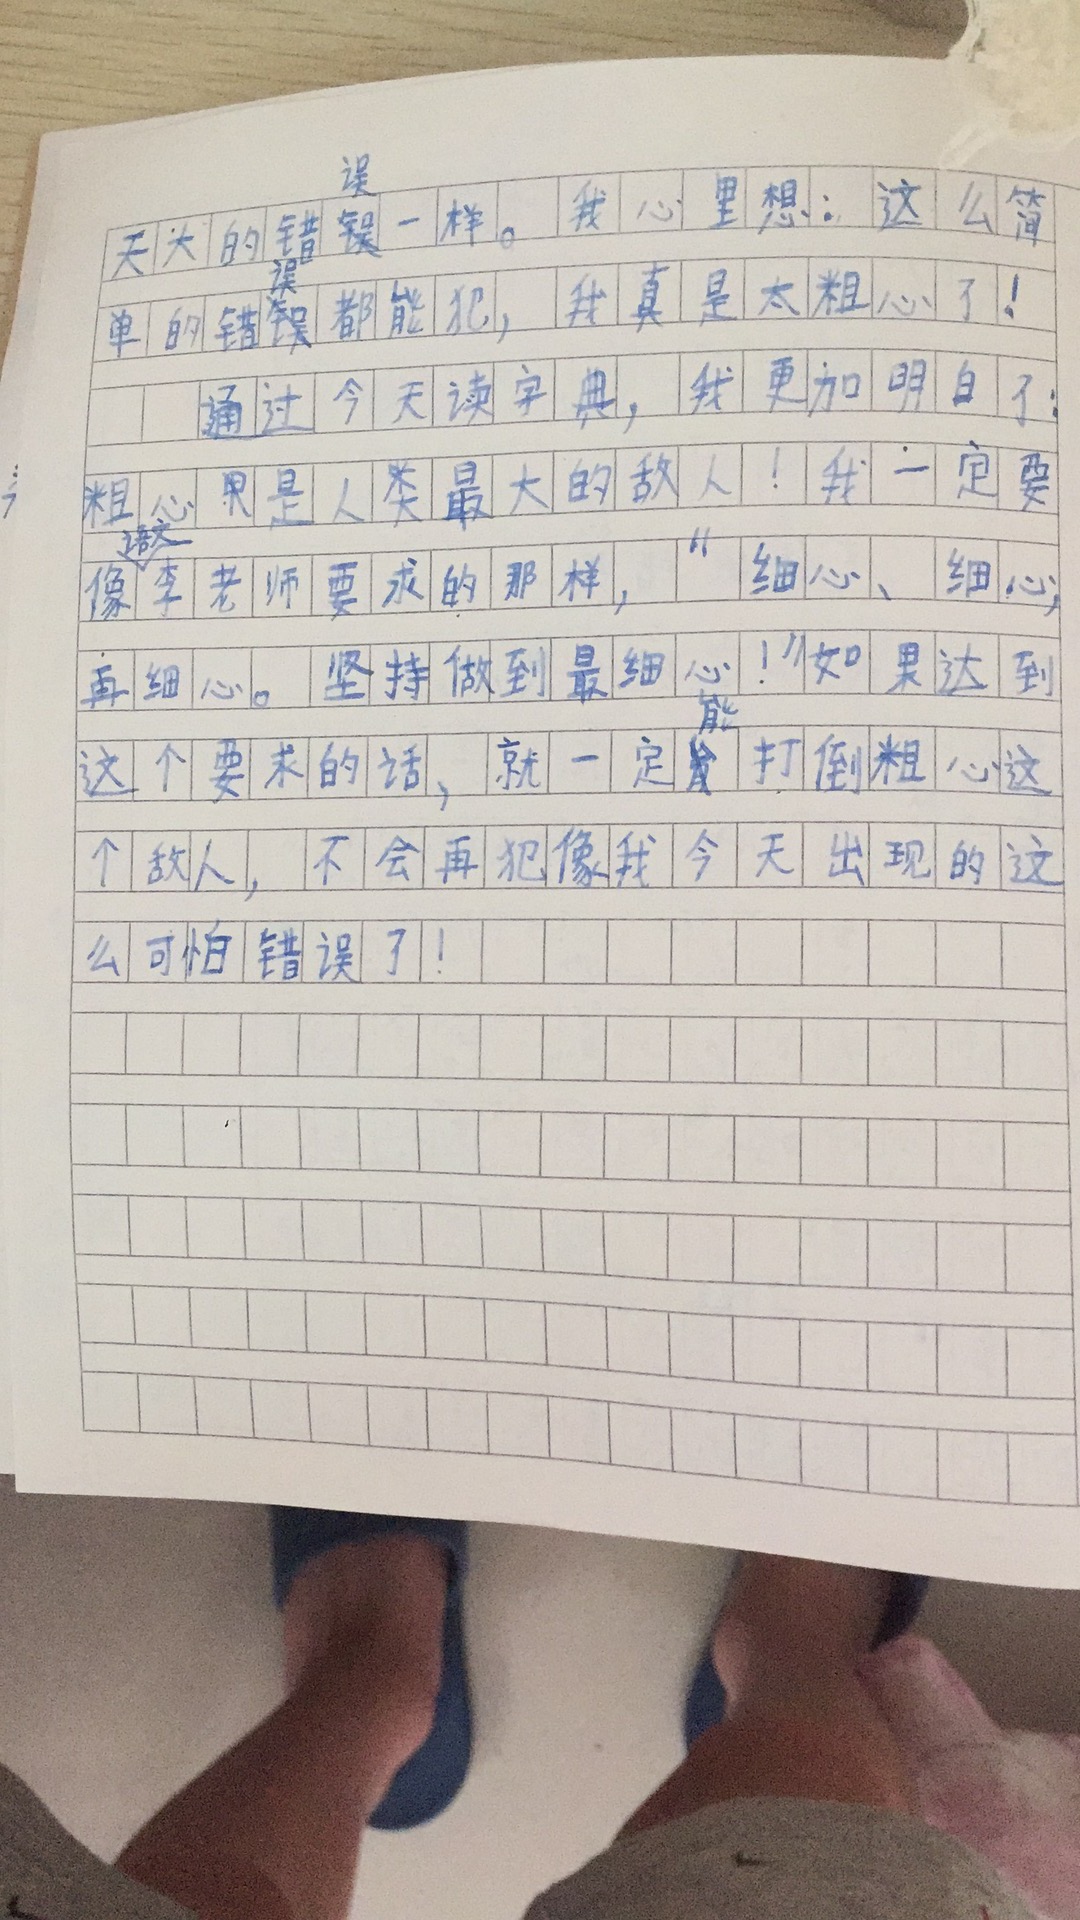 误
天大的错误一样。我心里想:这么简
误
单的错误都能犯,我真是太粗心了!
通过今天读字典,我更加明白了:
粗心果是人类最大的敌人!我一定要
语文
像李老师要求的那样,“细心、细心,
再细心。坚持做到最细心!”如果达到
能
这个要求的话,就一定打倒粗心这
个敌人,不会再犯像我今天出现的这
么可怕错误了!